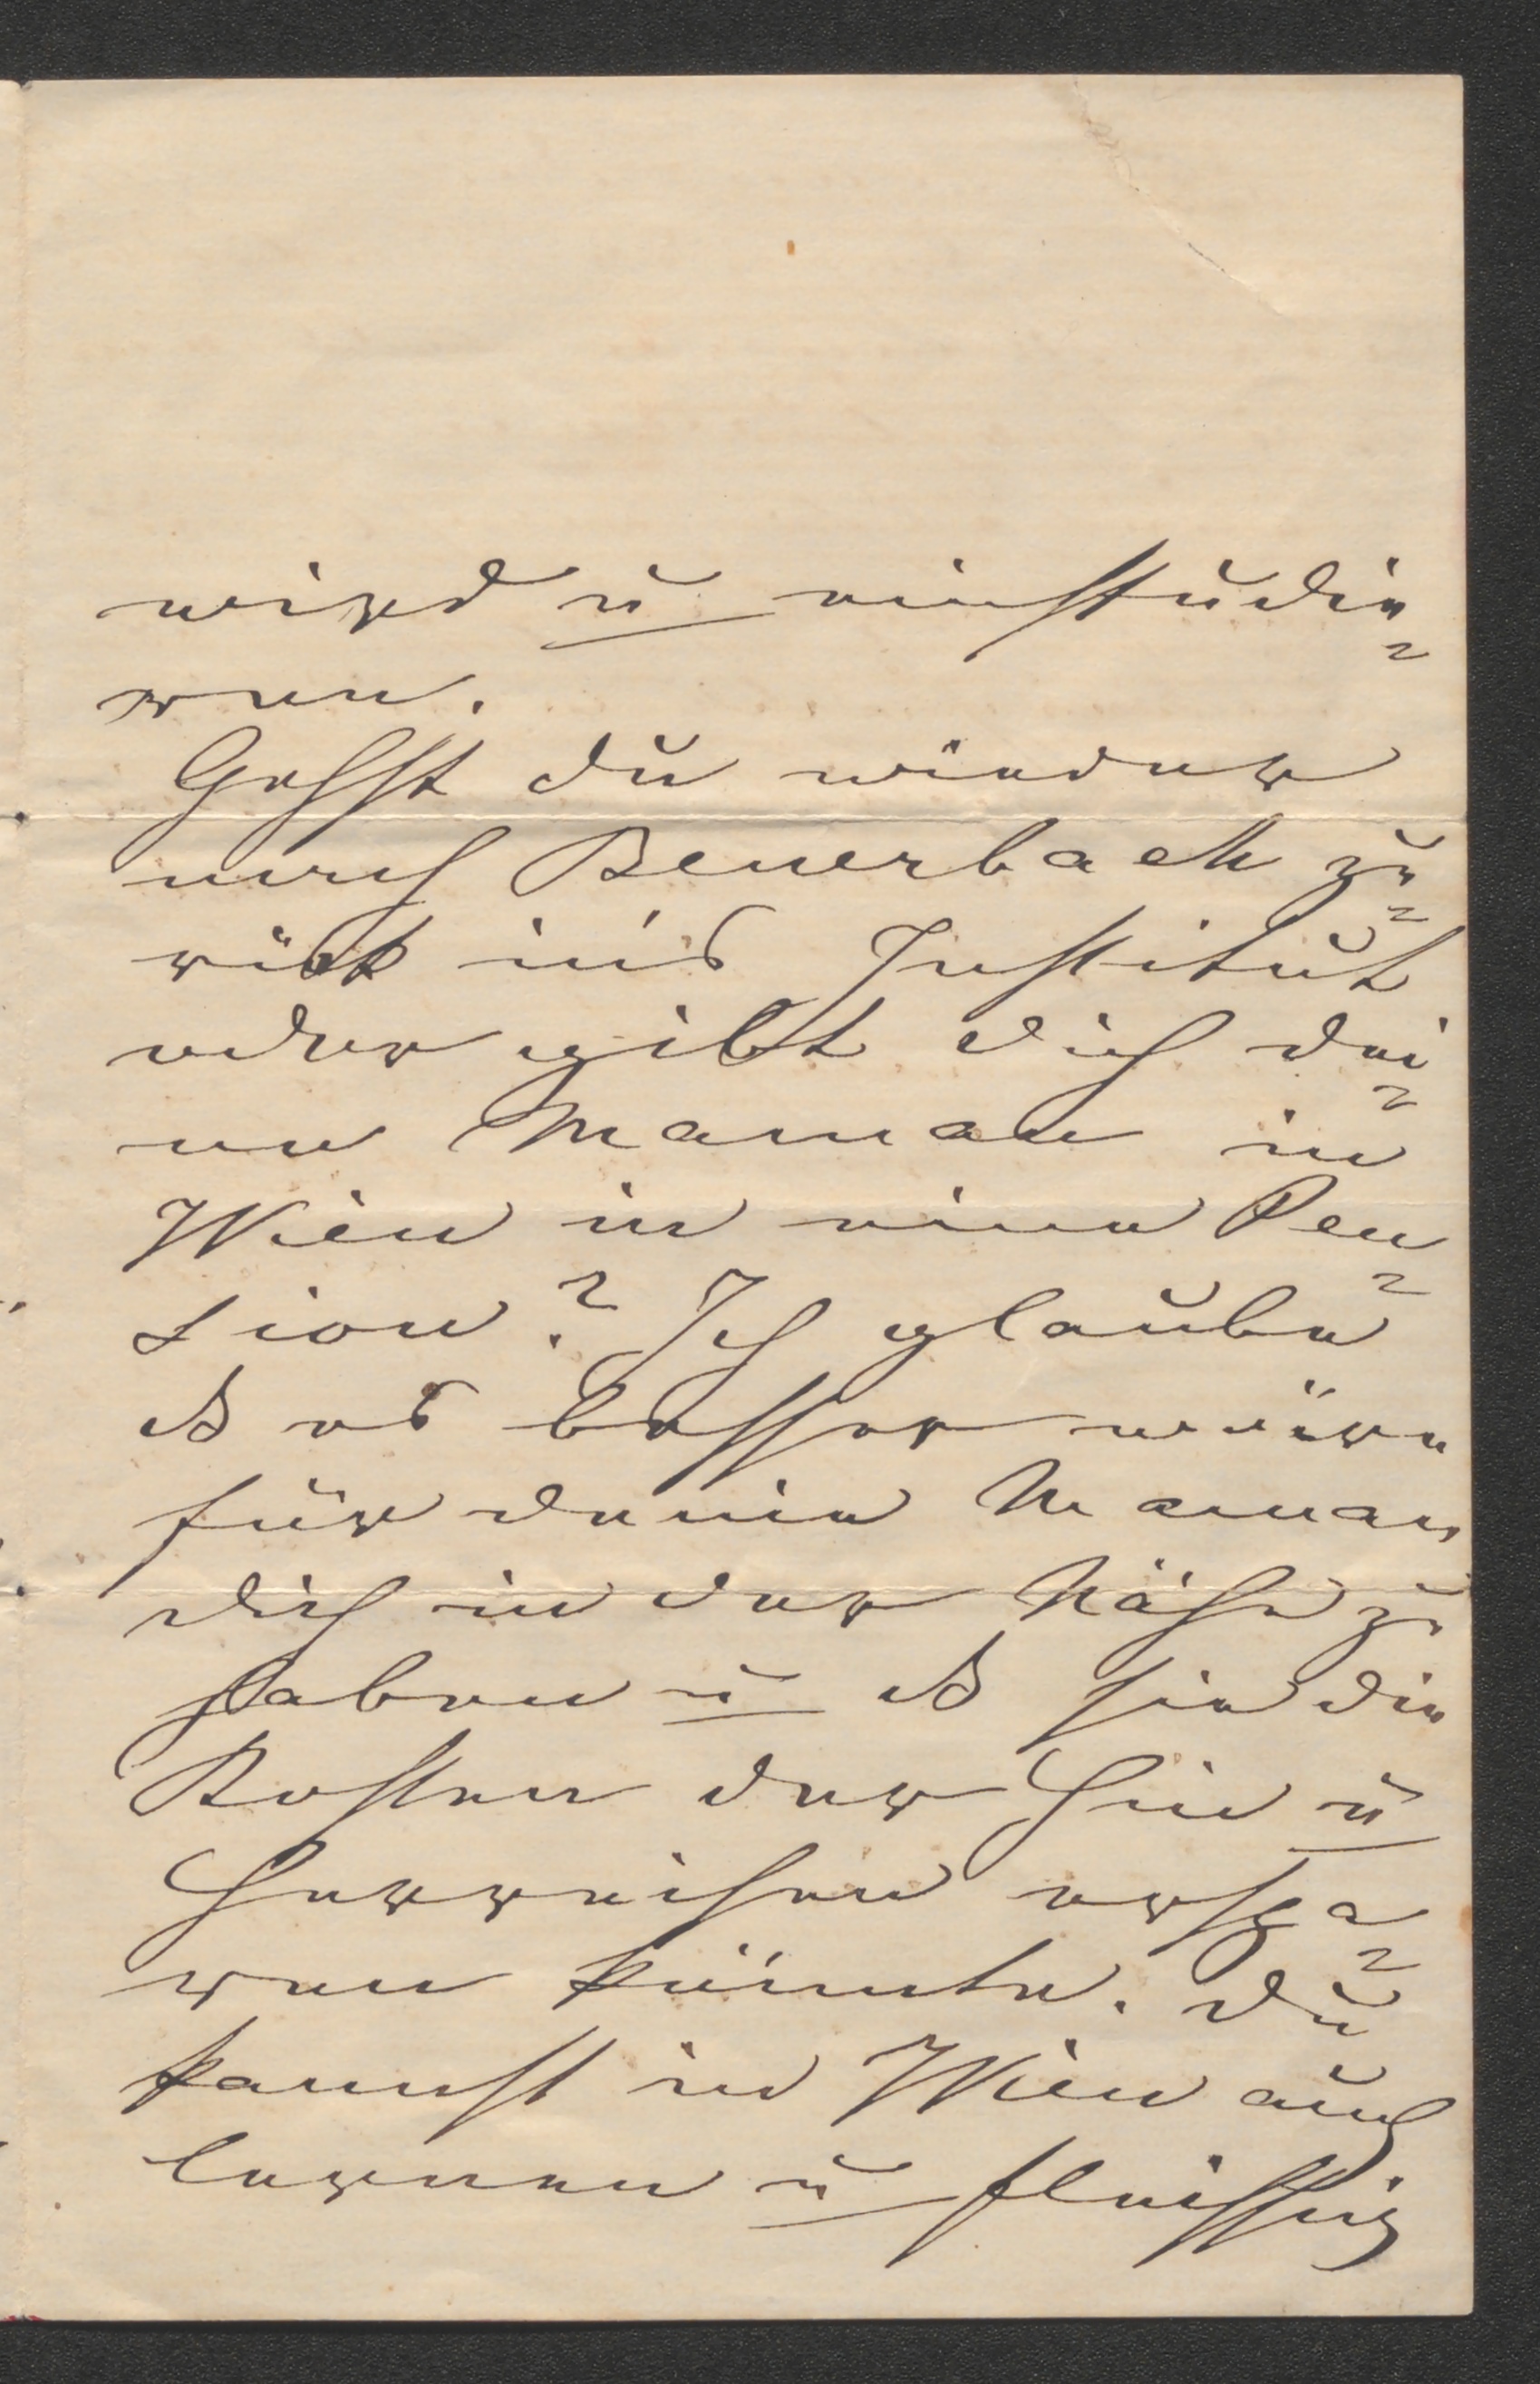 wird u einstudie-
ren.
Gehst du wieder
nach Beuerbach zu-
rük in's Institut
oder gibt dich dei-
ne Maman in
Wien in eine Pen-
sion? Ich glaube
ds es besser wäre
für deine Maman
dich in der Nähe zu
haben u ds sie die
Kosten der Hin u
Herreisen erspa-
ren könnte. Du
kannst in Wien auch
lernen u fleissig